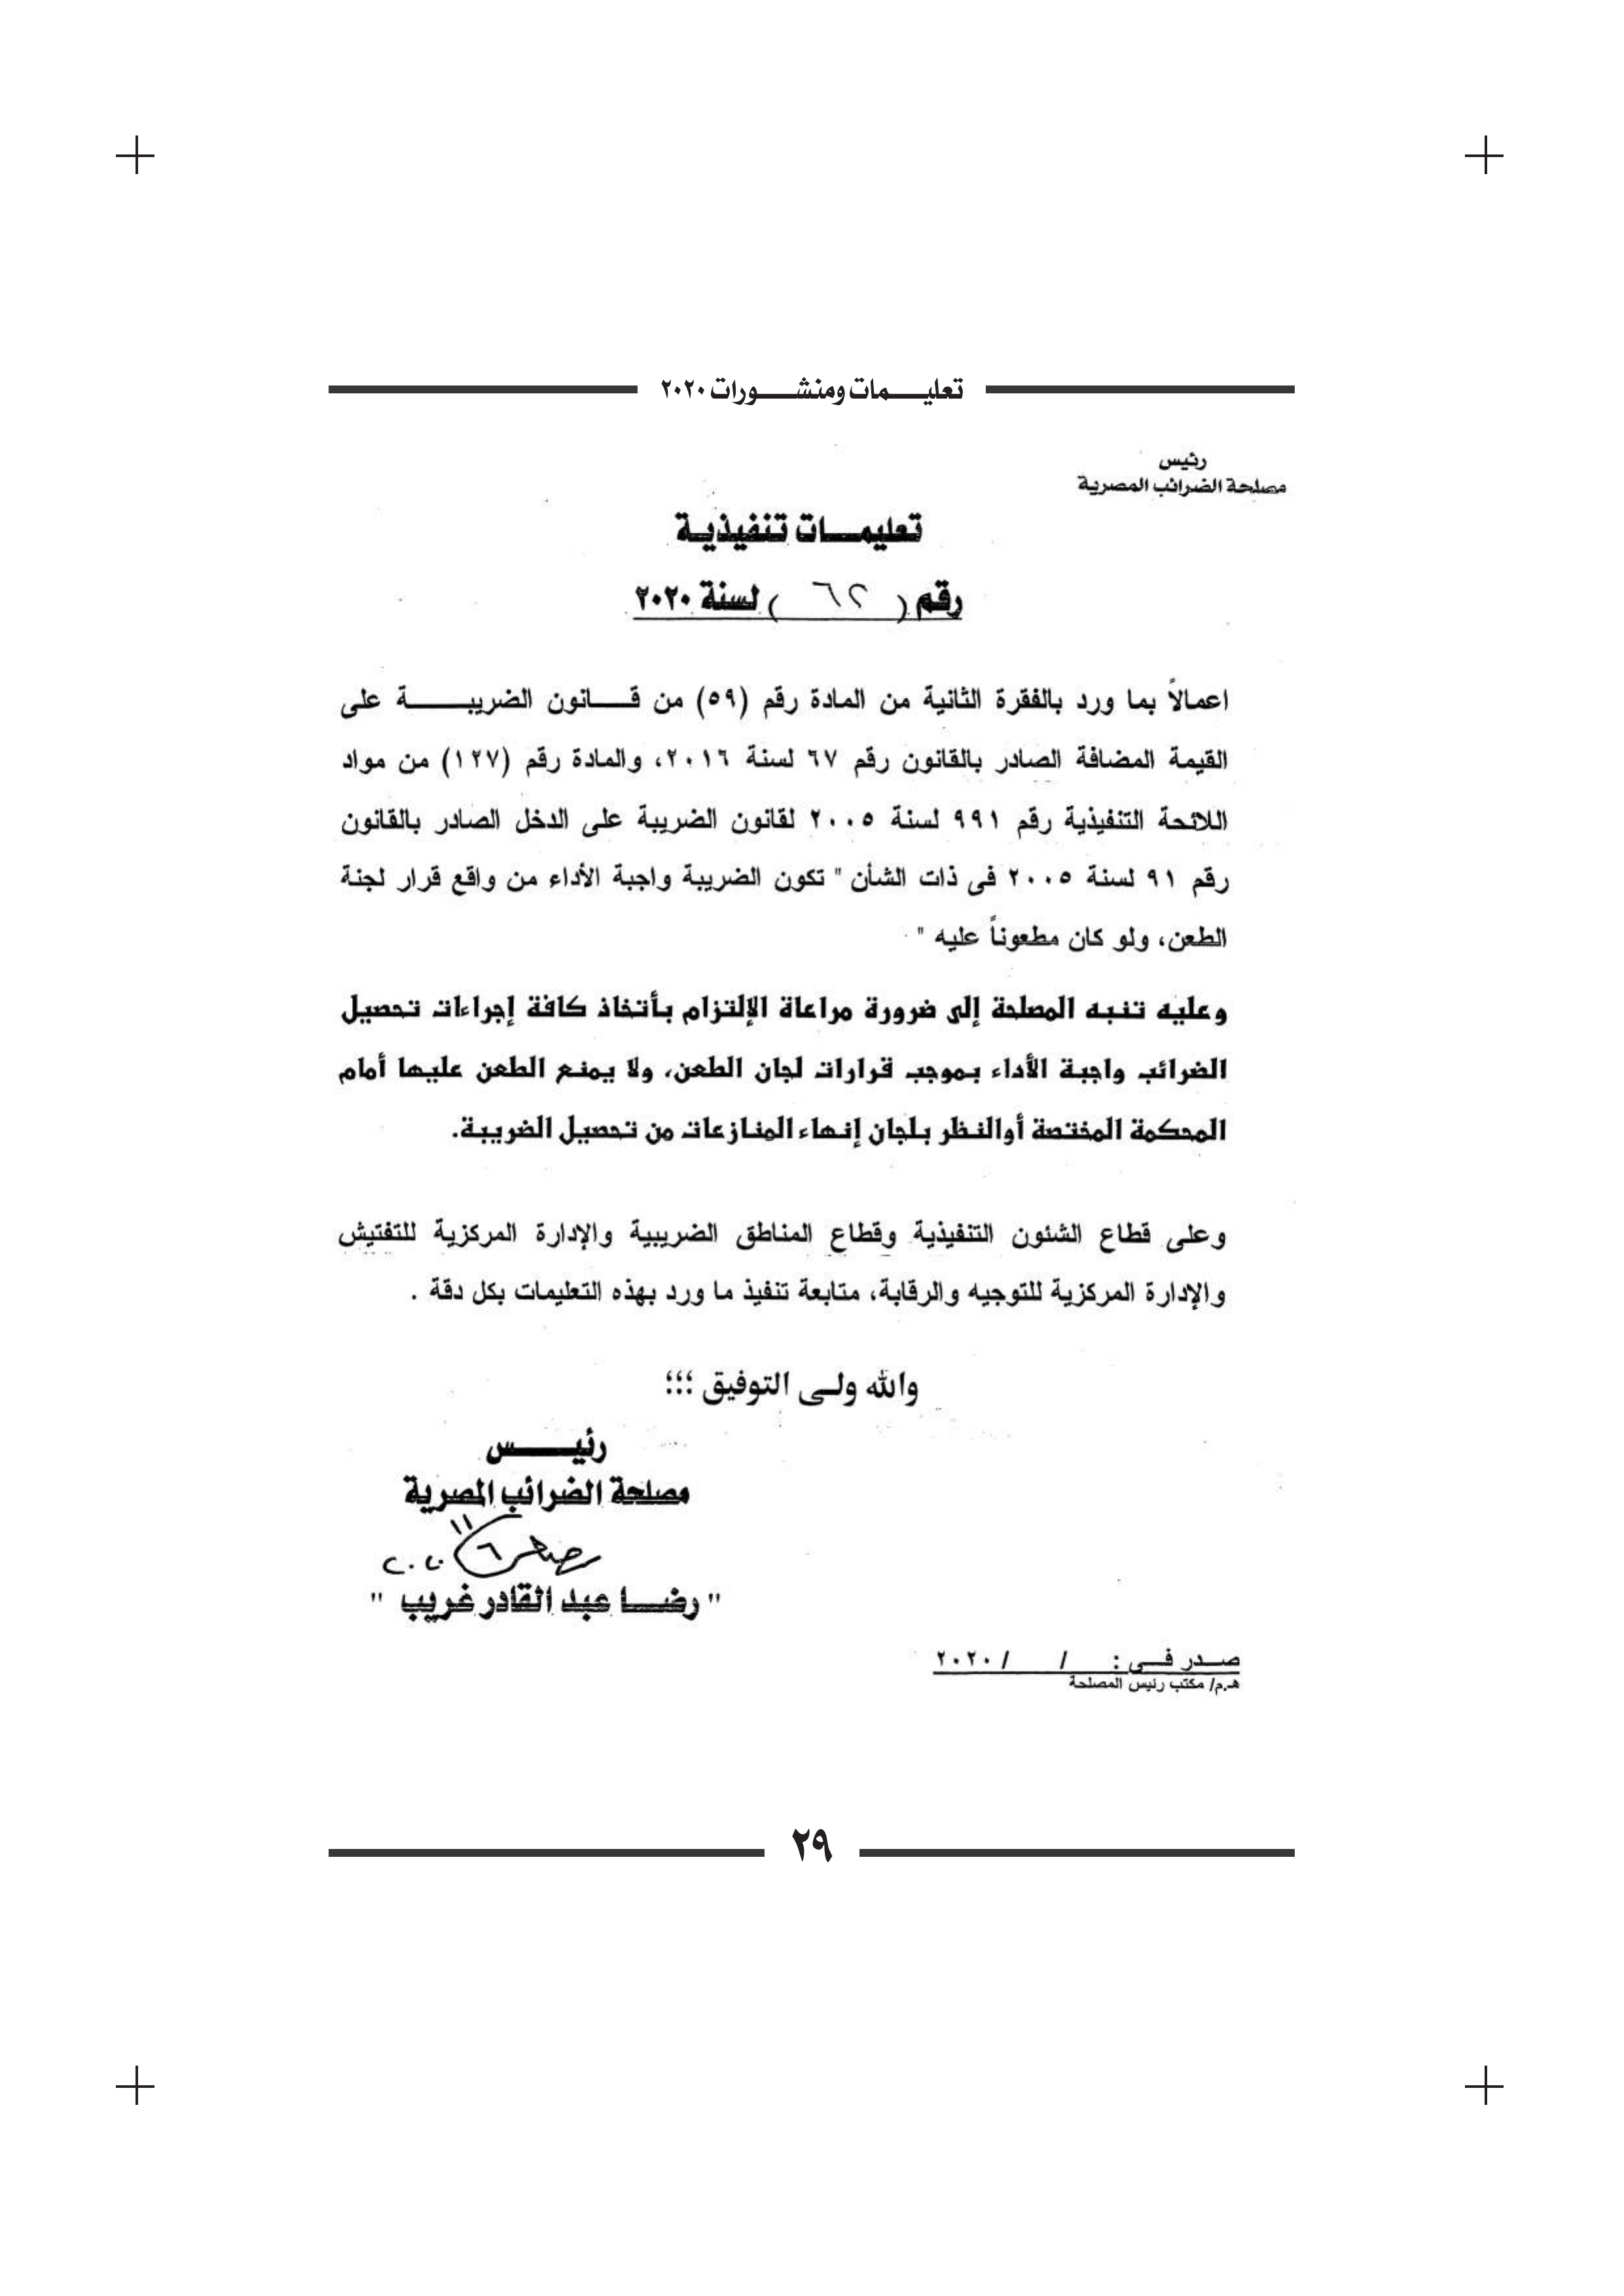 تعليمات ومنشورات ٢٠٢٠
رئيس
مصلحة الضرائب المصرية
تعليمات تنفيذية
رقم ( ٦٢ ) لسنة ٢٠٢٠
اعمالاً بما ورد بالفقرة الثانية من المادة رقم (٥٩) من قانون الضريبة على
القيمة المضافة الصادر بالقانون رقم ٦٧ لسنة ٢٠١٦، والمادة رقم (١٢٧) من مواد
اللائحة التنفيذية رقم ٩٩١ لسنة ٢٠٠٥ لقانون الضريبة على الدخل الصادر بالقانون
رقم ٩١ لسنة ٢٠٠٥ فى ذات الشأن " تكون الضريبة واجبة الأداء من واقع قرار لجنة
الطعن، ولو كان مطعوناً عليه "
وعليه تنبه المصلحة إلى ضرورة مراعاة الإلتزام بأتخاذ كافة إجراءات تحصيل
الضرائب واجبة الأداء بموجب قرارات لجان الطعن، ولا يمنع الطعن عليها أمام
المحكمة المختصة أوالنظر بلجان إنهاء المنازعات من تحصيل الضريبة.
وعلى قطاع الشئون التنفيذية وقطاع المناطق الضريبية والإدارة المركزية للتفتيش
والإدارة المركزية للتوجيه والرقابة، متابعة تنفيذ ما ورد بهذه التعليمات بكل دقة .
والله ولى التوفيق ؛؛؛
رئيس
مصلحة الضرائب المصرية
" رضا عبد القادر غريب "
صدر فى : / / ٢٠٢٠
هـ.م/ مكتب رئيس المصلحة
٢٩